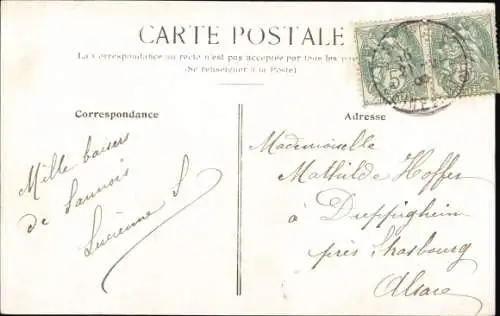 CARTE POSTALE
La Correspondance au recto n'est pas acceptée par tous les
(Se renseigner à la Poste)
Correspondance
Adresse
Mille baisers
de Sannois
Lucienne S
Mademoiselle
Mathilde Hoffer
à Druppigheim
près Strasbourg
Alsace